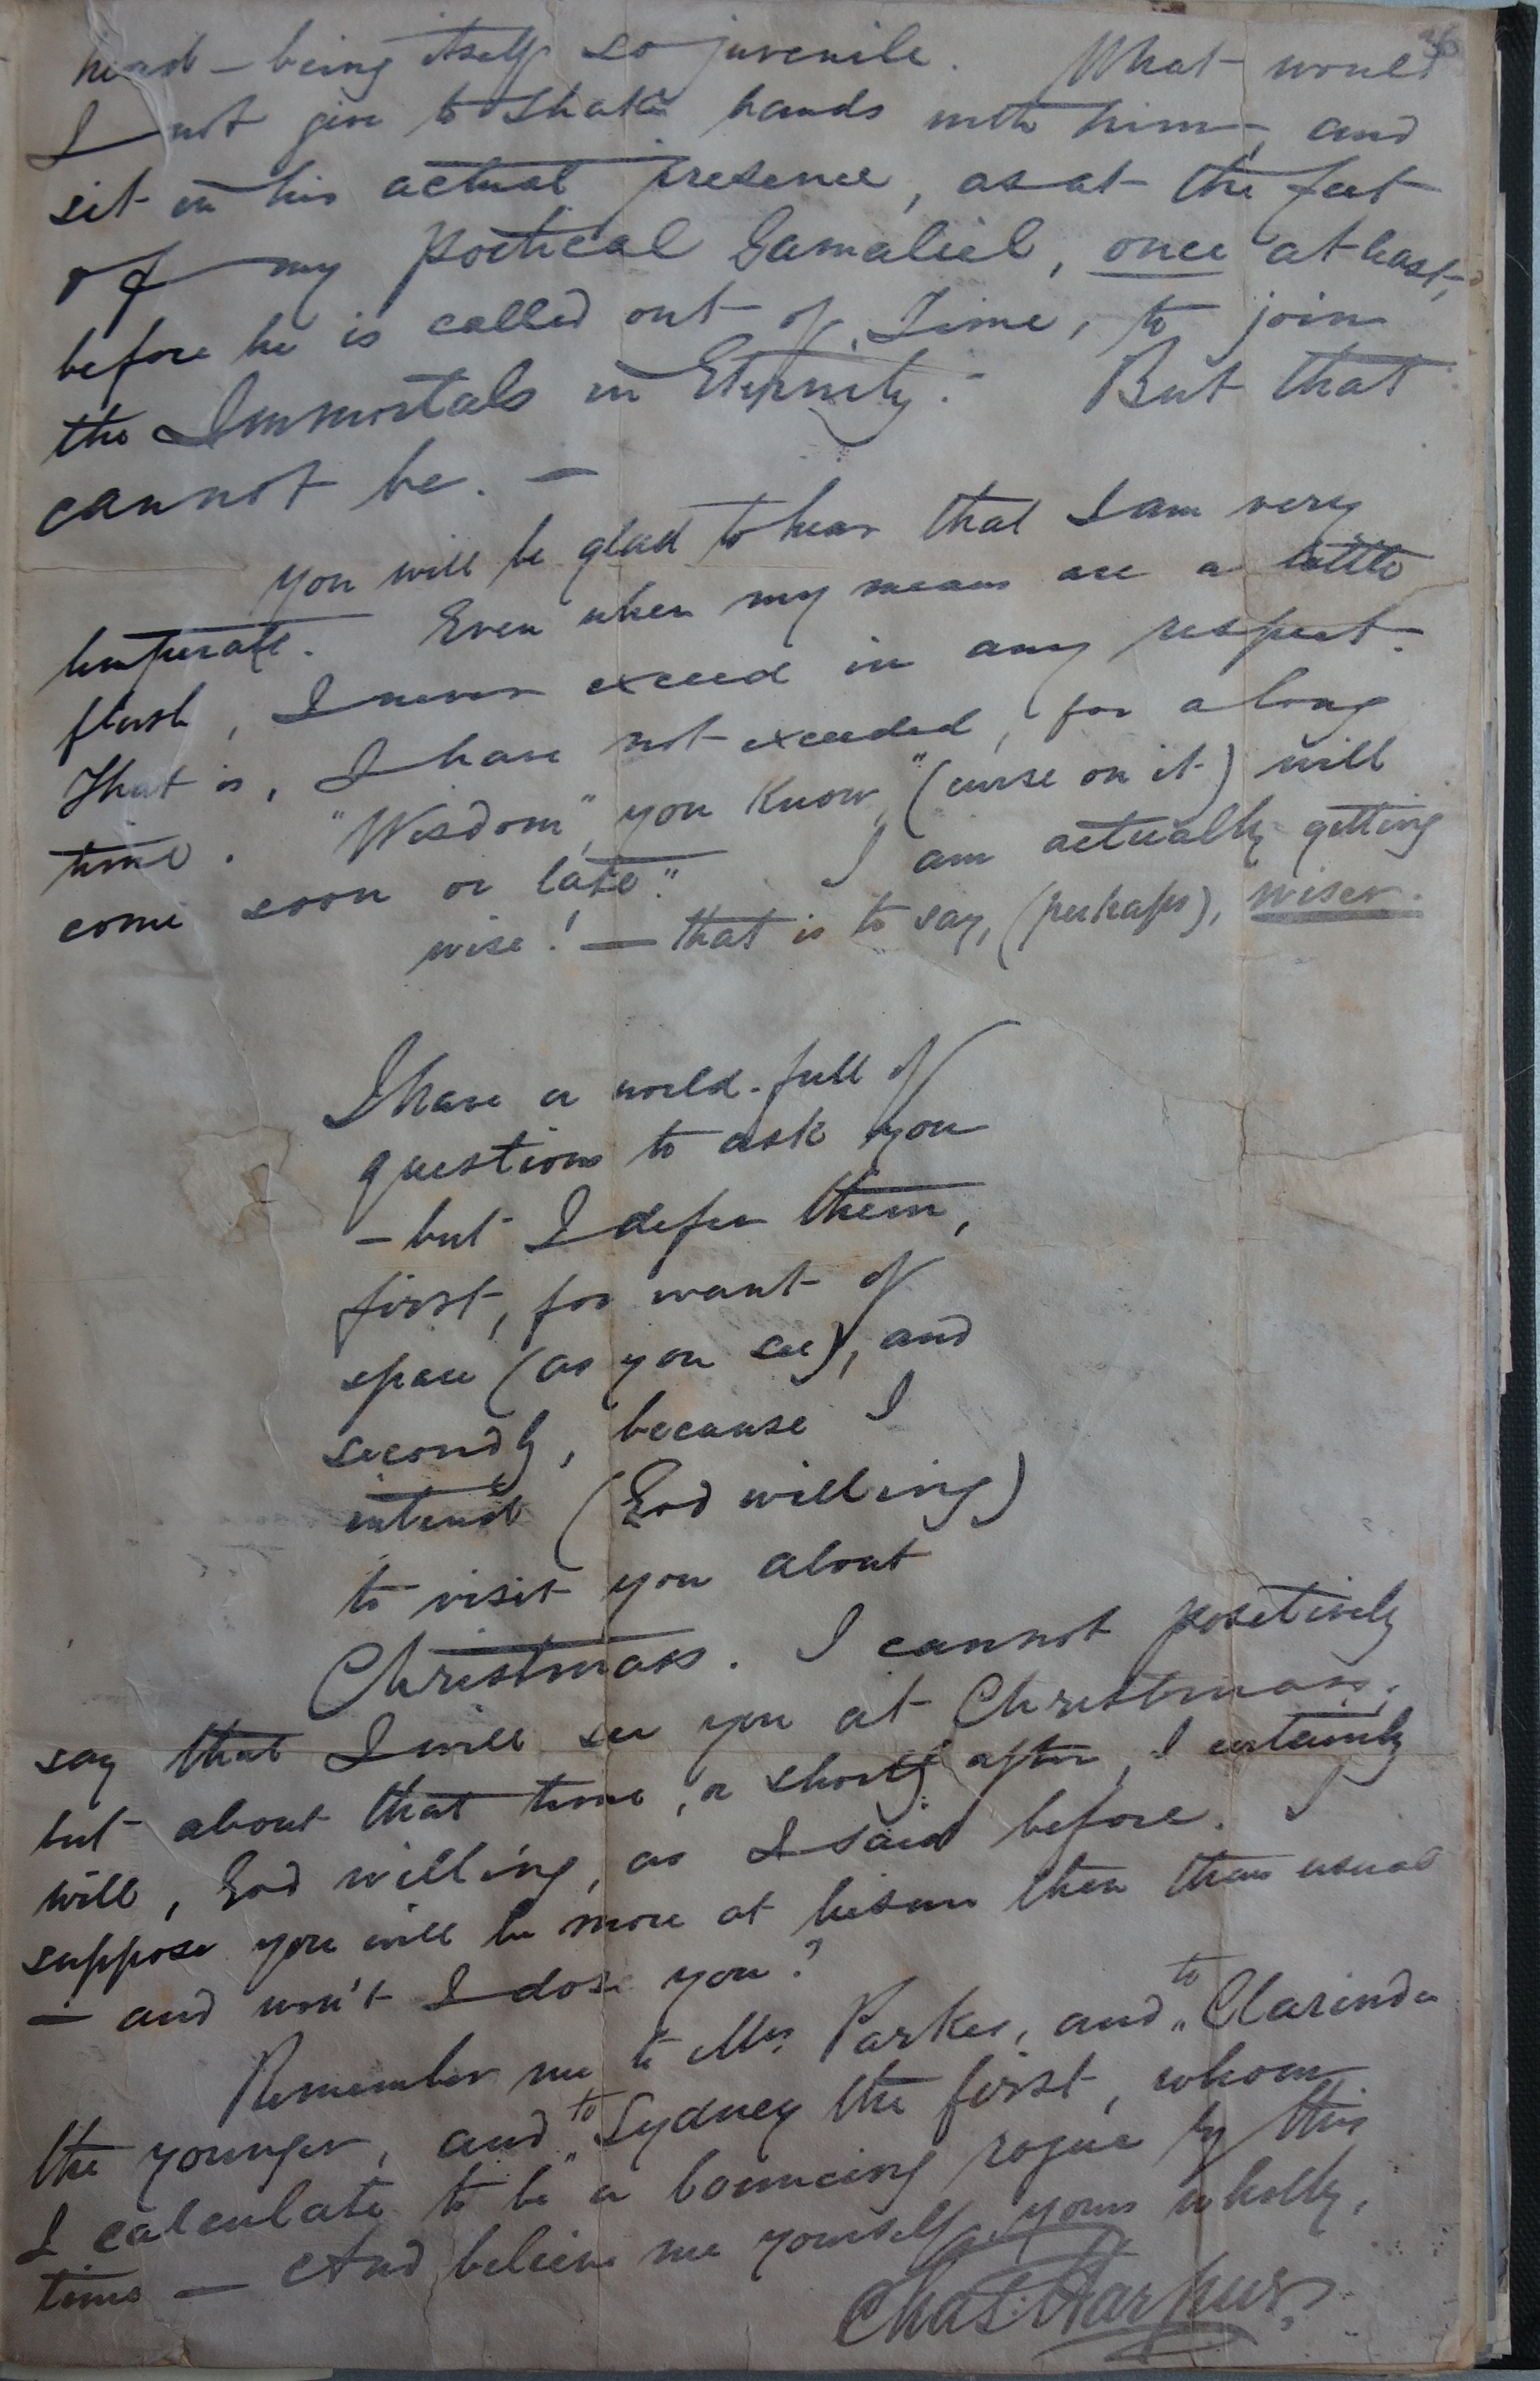 36
hind – being itself so juvenile. What would
I not give to shake hands with him, and
sit in his actual presence, as at the feet
of my poetical Gamaliel, once at least,
before he is called out of Time, to join
the Immortals in Eternity. – But that
cannot be. –
you will be glad to hear that I am very
temperate. Even when my means are a little
flush, I never exceed in any respect.
That is, I have not exceeded, for a long
time. "Wisdom", you know, "(curse on it) will
come soon or late." I am actually getting
wise! – that is to say, (perhaps), wiser.
I have a world-full of
questions to ask you
– but I defer them,
first, for want of
space (as you see), and
secondly, because I
intend (God willing)
to visit you about
Christmass. I cannot positively
say that I will see you at Christmass,
but about that time, or shortly after, I certainly
will, God willing, as I said before. I
suppose you will be more at leisure then than usual
– and won't I dose you?
Remember me to Mrs. Parkes, and to Clarinda
the younger, and to Sydney the first, whom
I calculate to be a bouncing rogue by this
time – And believe me yourself, yours wholly,
Chas. Harpur.